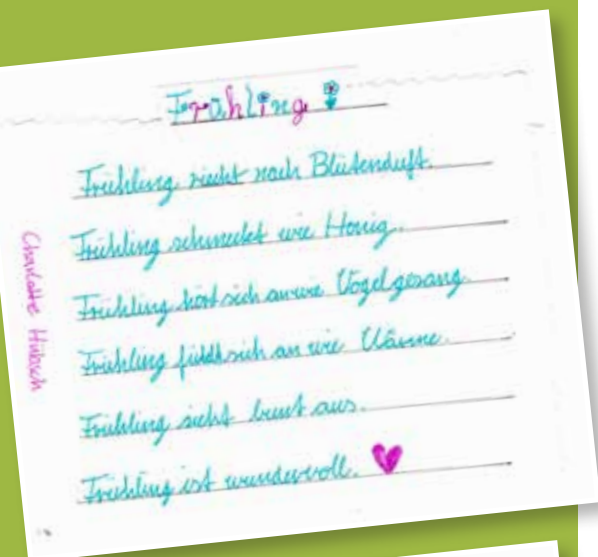 Frühling
Frühling riecht nach Blütenduft.
Frühling schmeckt wie Honig.
Frühling hört sich an wie Vogelgesang.
Frühling fühlt sich an wie Wärme.
Frühling sieht bunt aus.
Frühling ist wundervoll.
Charlotte Hübsch